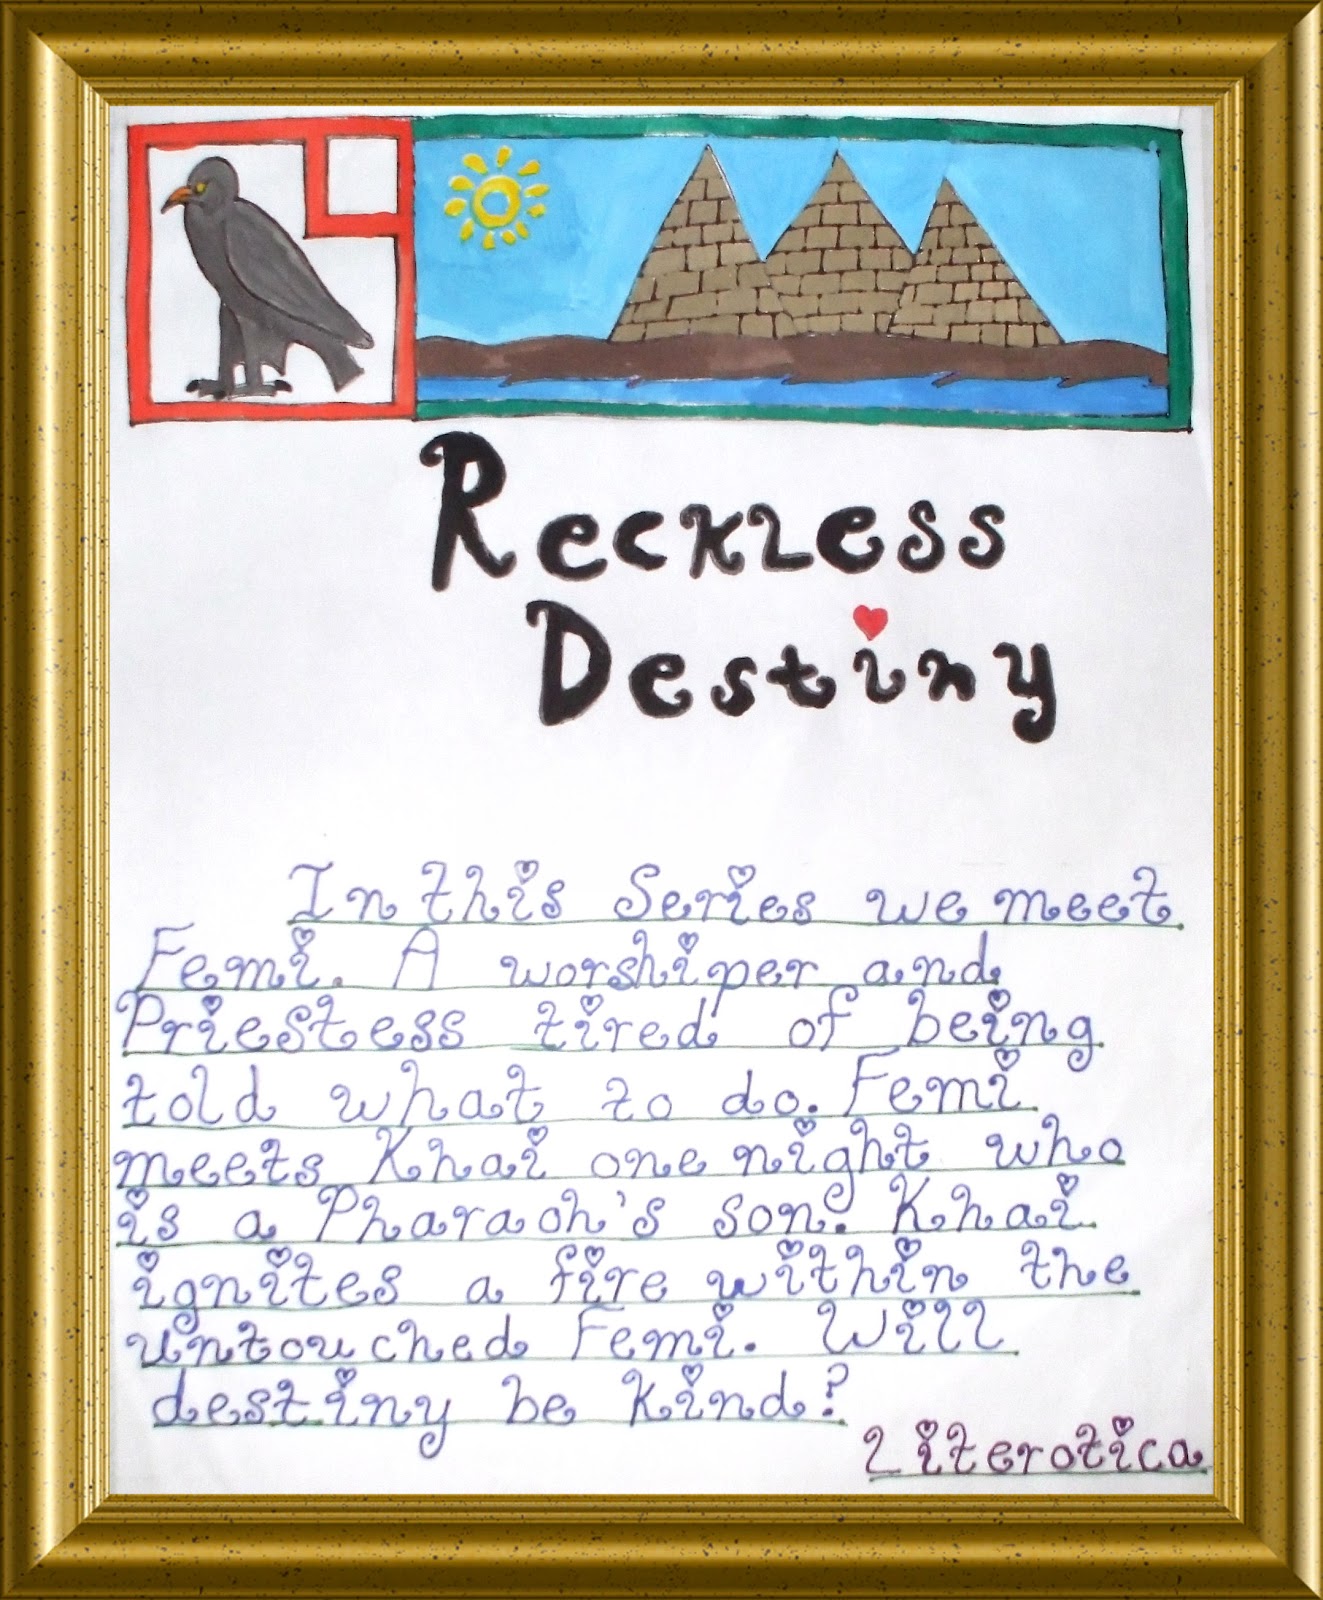 Reckless
Destiny
In this Series we meet
Femi. A worshiper and
Priestess tired of being
told what to do. Femi
meets Khai one night who
is a Pharaoh's son. Khai
ignites a fire within the
untouched Femi. Will
destiny be kind?
Literotica